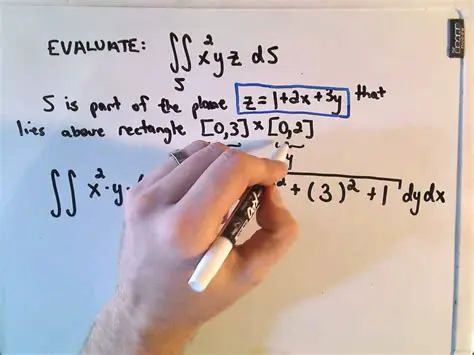 EVALUATE: ∬ x²yz dS
S
S is part of the plane z=1+2x+3y that
lies above rectangle [0,3]×[0,2]
y
∬ x²·y· ² + (3)² + 1 dydx
EXPO